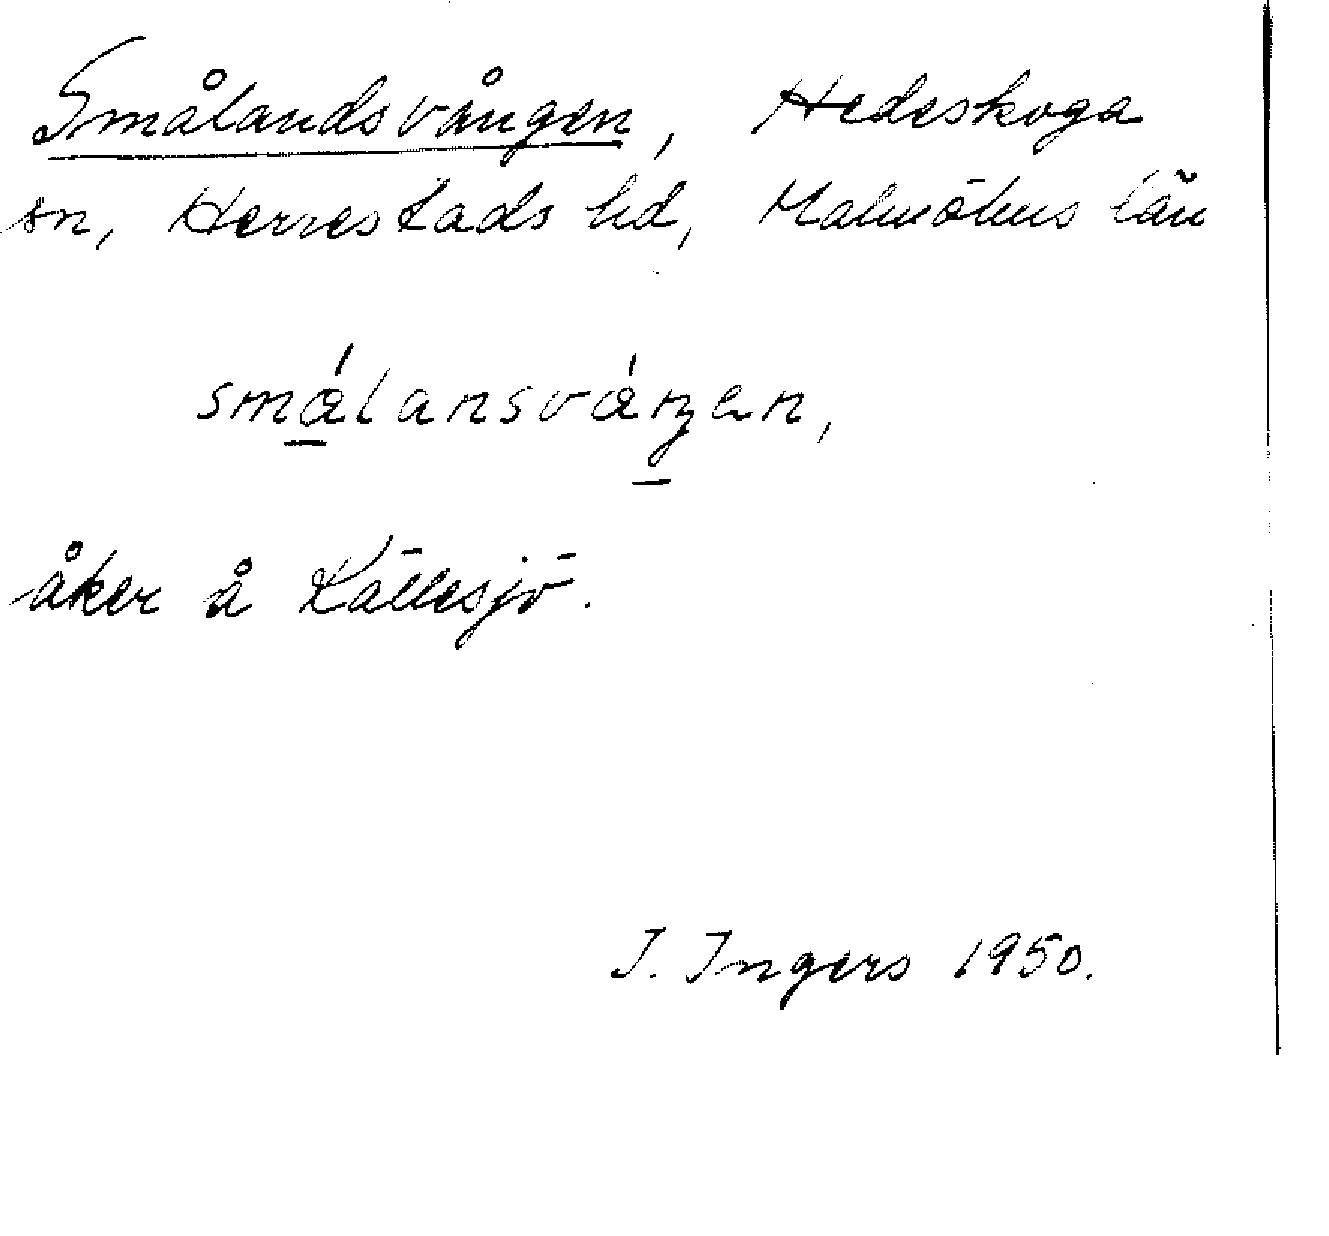 Smålandsvången, Hedeskoga
sn, Herrestads hd, Malmöhus län
smålansváŋan,
åker å Källesjö.
I. Ingers 1950.